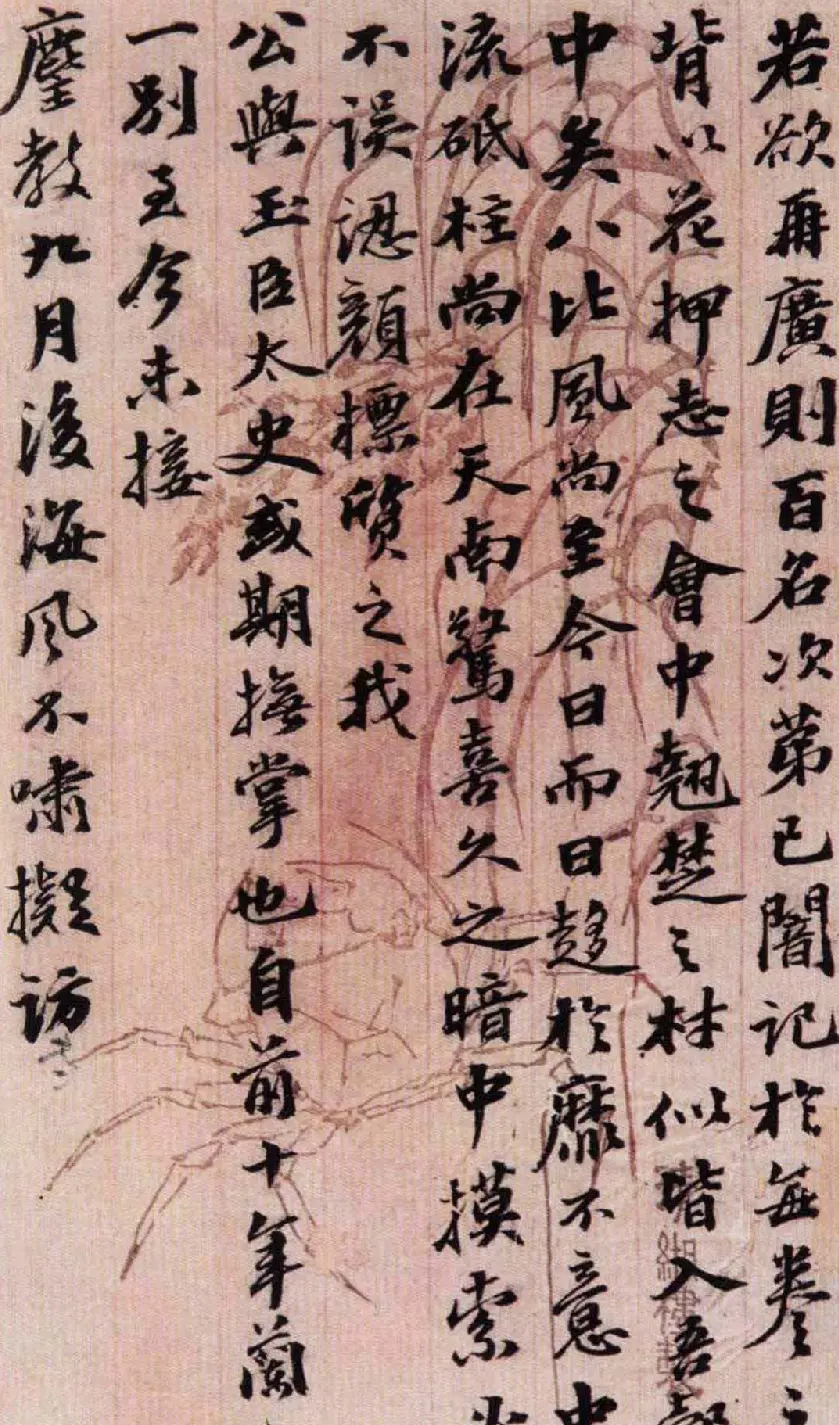 若欲再廣則百名次第已闇記於每卷之
背以花押志之會中翹楚之材似皆入吾彀
中矣八比風尚至今日而日趍於靡不意中
流砥柱尚在天南驚喜久之暗中摸索
不誤認顏標質之我
公與玉臣太史或期撫掌也自前十年蘭
一別至今未接
麈教九月後海風不嘯擬訪